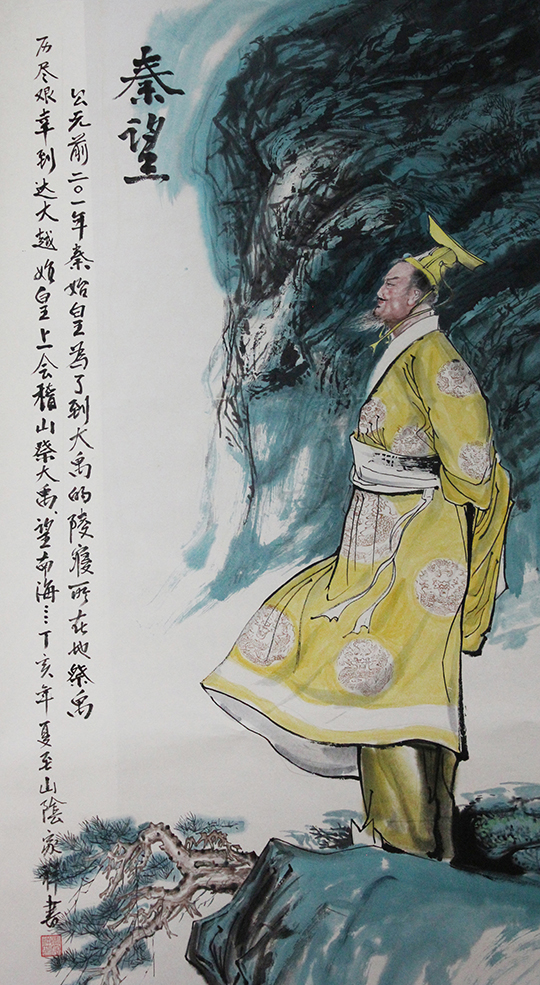 秦望
公元前二〇一年秦始皇為了到大禹的陵寝所在地祭禹
历尽艰辛到达大越始皇上会稽山祭大禹、望南海…丁亥年夏至山陰家書